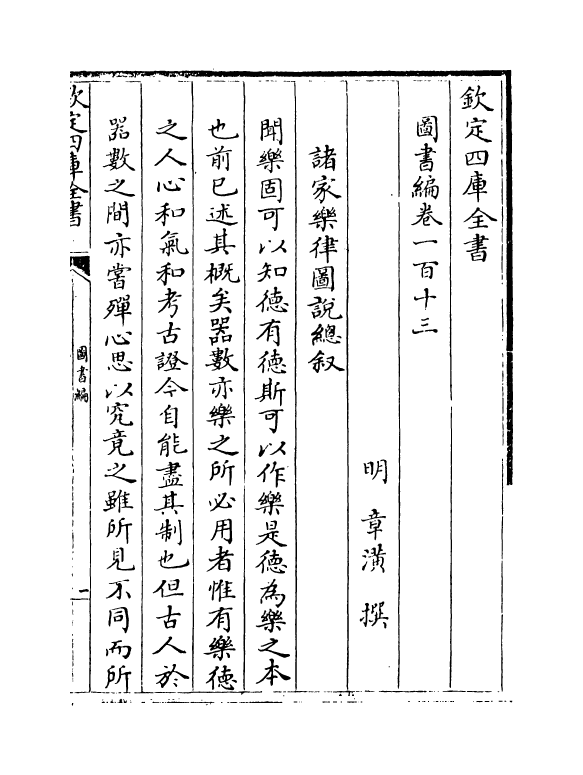 欽定四庫全書
圖書編卷一百十三
明 章潢 撰
諸家樂律圖說總叙
聞樂固可以知德有德斯可以作樂是德為樂之本
也前已述其概矣器數亦樂之所必用者惟有樂德
之人心和氣和考古證今自能盡其制也但古人於
器數之間亦嘗殫心思以究竟之雖所見不同而所
欽定四庫全書
圖書編
一